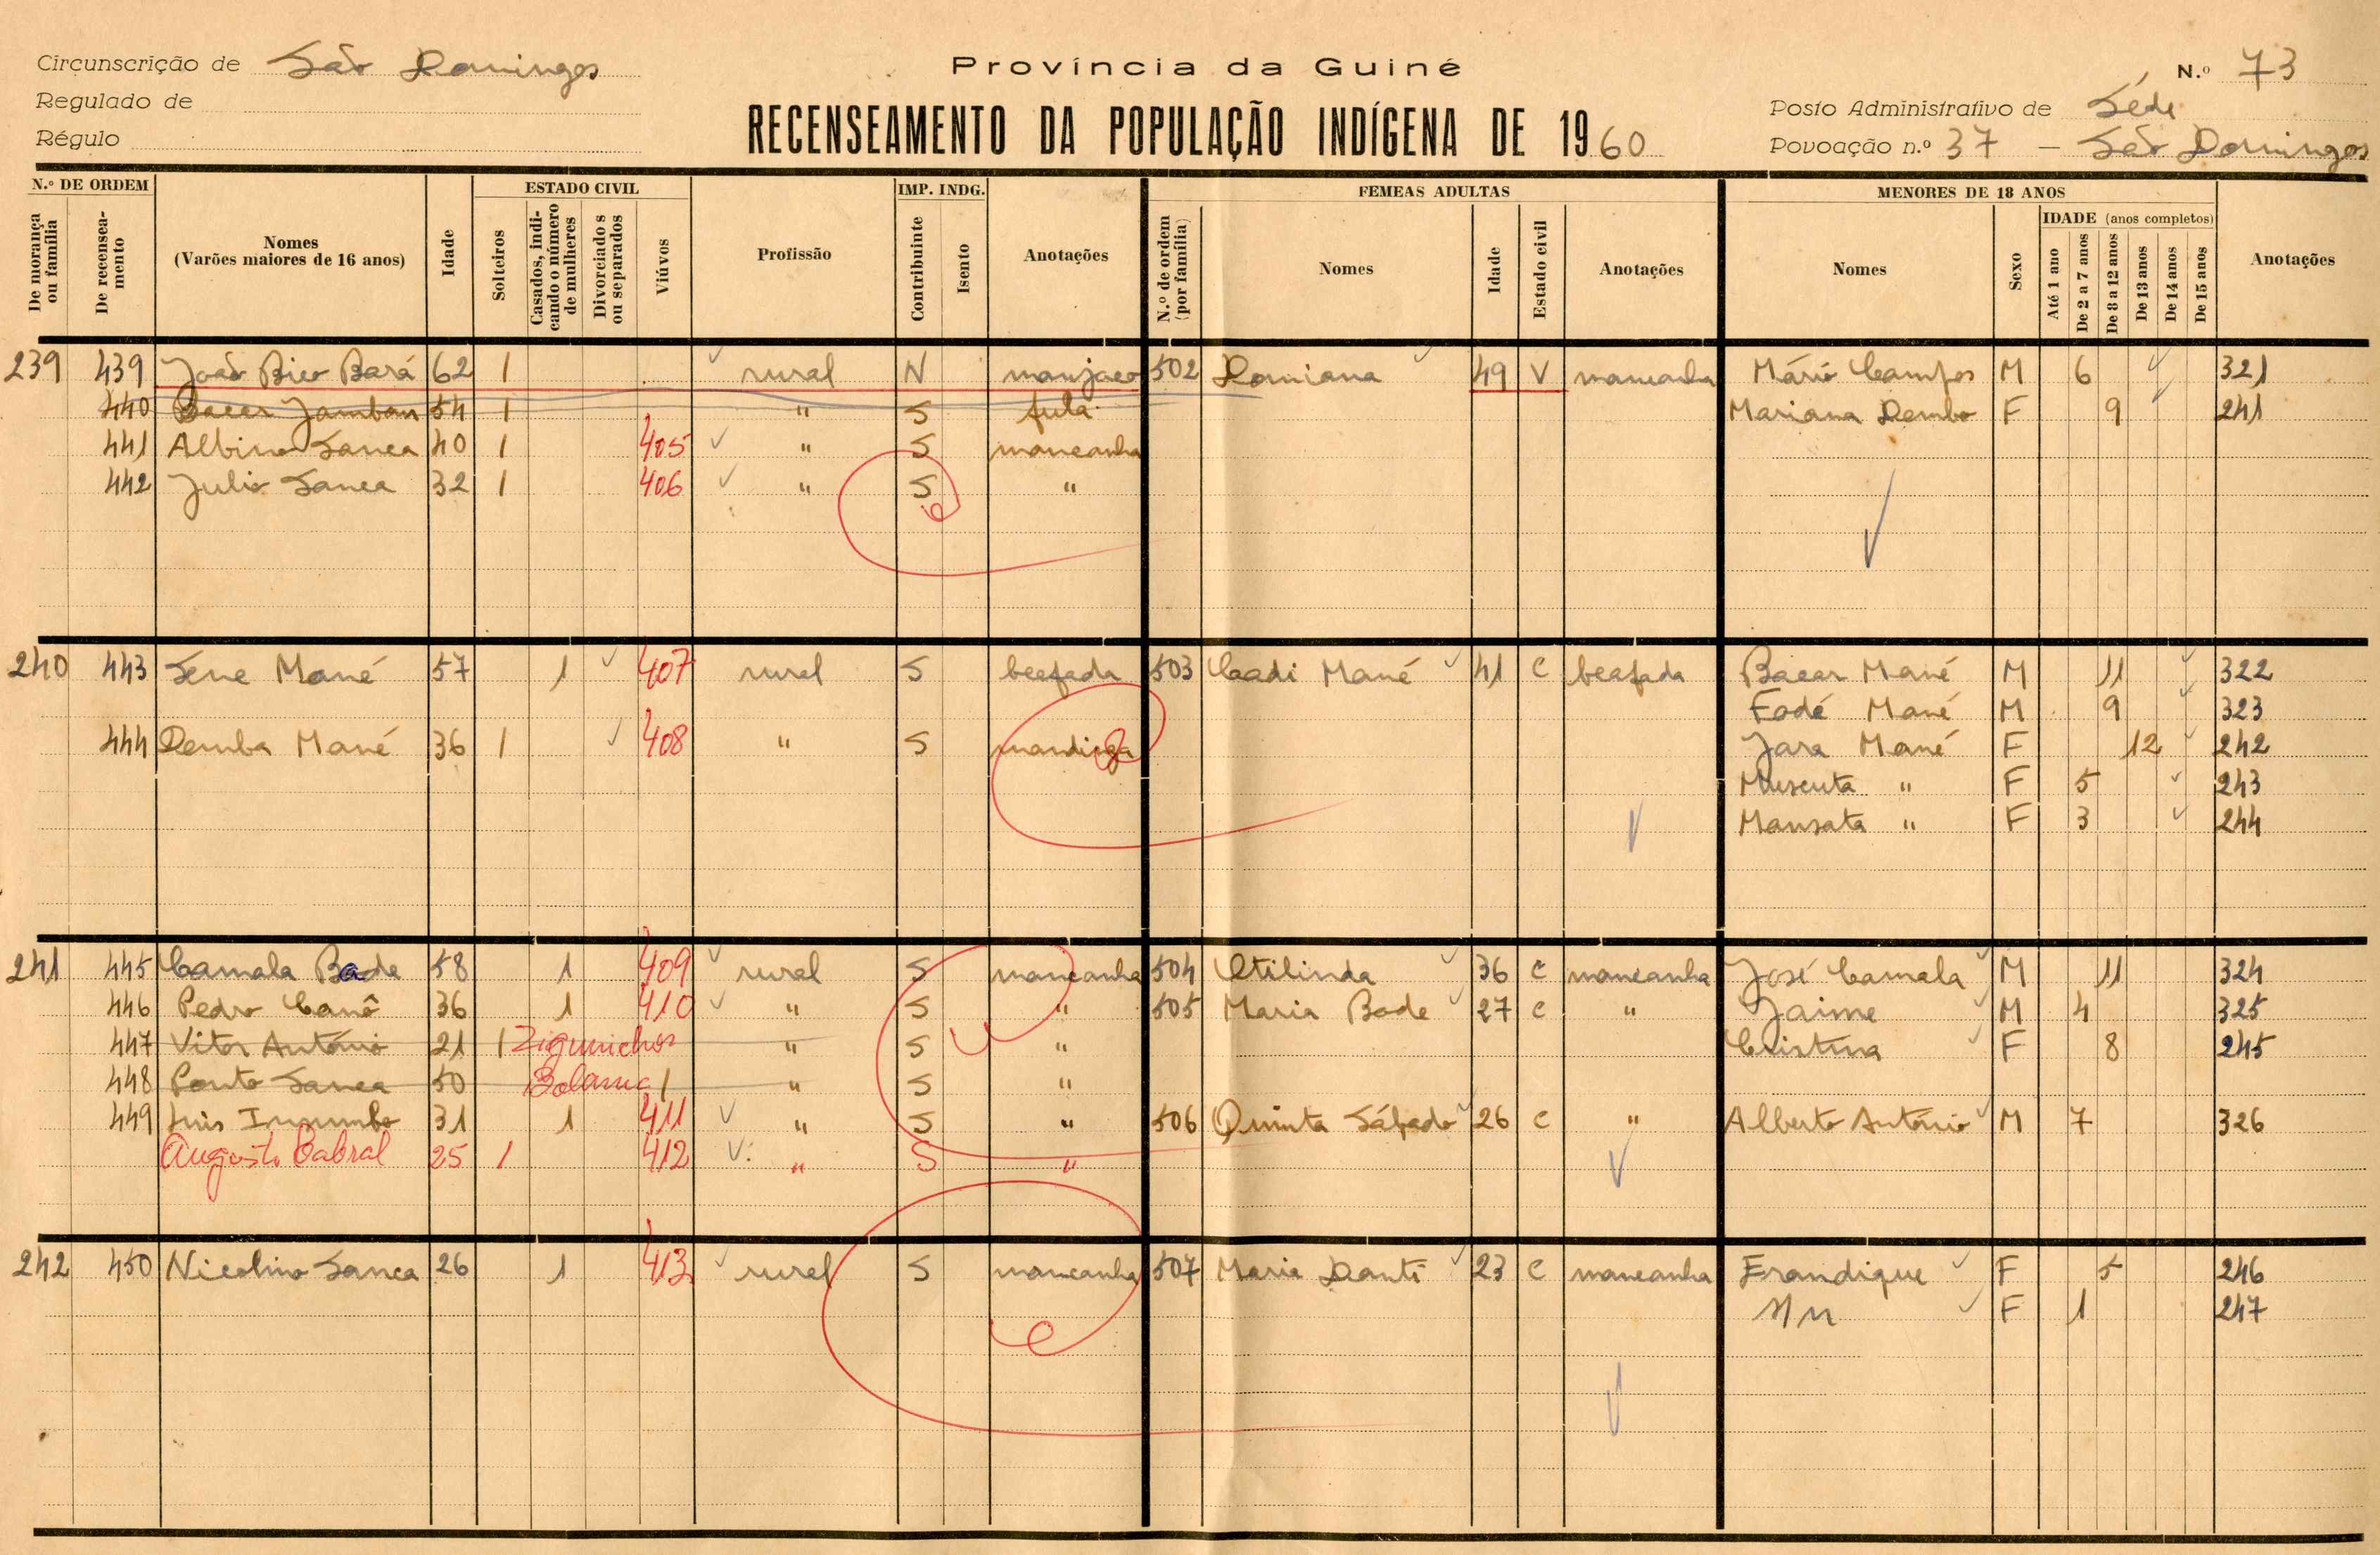 Circunscrição de São Domingos
Regulado de
Régulo
Província da Guiné
RECENSEAMENTO DA POPULAÇÃO INDÍGENA DE 1960
N.º 73
Posto Administrativo de Séde
Povoação n.º 37 – São Domingos
N.º DE ORDEM ESTADO CIVIL IMP. INDG. FEMEAS ADULTAS MENORES DE 18 ANOS
De morança ou família
De recenseamento
Nomes
(Varões maiores de 16 anos)
Idade
Solteiros
Casados, indicando o número de mulheres
Divorciados ou separados
Viúvos
Profissão
Contribuinte
Isento
Anotações
N.º de ordem (por família)
Nomes
Idade
Estado civil
Anotações
Nomes
Sexo
IDADE (anos completos)
Até 1 ano
De 2 a 7 anos
De 8 a 12 anos
De 13 anos
De 14 anos
De 15 anos
Anotações
239 439 João Bico Bará 62 1 rural N manjaco 502 Damiana 49 V mancanha Mário Campos M 6 321
440 Bacar Jamban 54 1 " S fula Mariana Dembo F 9 241
441 Albino Sanca 40 1 405 " S mancanha
442 Julio Sanca 32 1 406 " S "
240 443 Sene Mané 57 1 407 rural S beafada 503 Cadi Mané 41 C beafada Bacar Mané M 11 322
Fodé Mané M 9 323
444 Demba Mané 36 1 408 " S mandinga Jara Mané F 12 242
Muscuta " F 5 243
Mansata " F 3 244
241 445 Camala Bade 58 1 409 rural S mancanha 504 Etilinda 36 C mancanha José Camala M 11 324
446 Pedro Canô 36 1 410 " S " 505 Maria Bode 27 C " Jaime M 4 325
447 Vitor António 21 1 Ziguinchor " S " Cristina F 8 245
448 Ponto Sanca 50 Bolama 1 " S "
449 Luis 31 1 411 " S " 506 Quinta Sábado 26 C " Alberto António M 7 326
Augusto Cabral 25 1 412 " S "
242 450 Nicolino Sanca 26 1 413 rural S mancanha 507 Maria Danti 23 C mancanha Frandique F 5 246
F 1 247